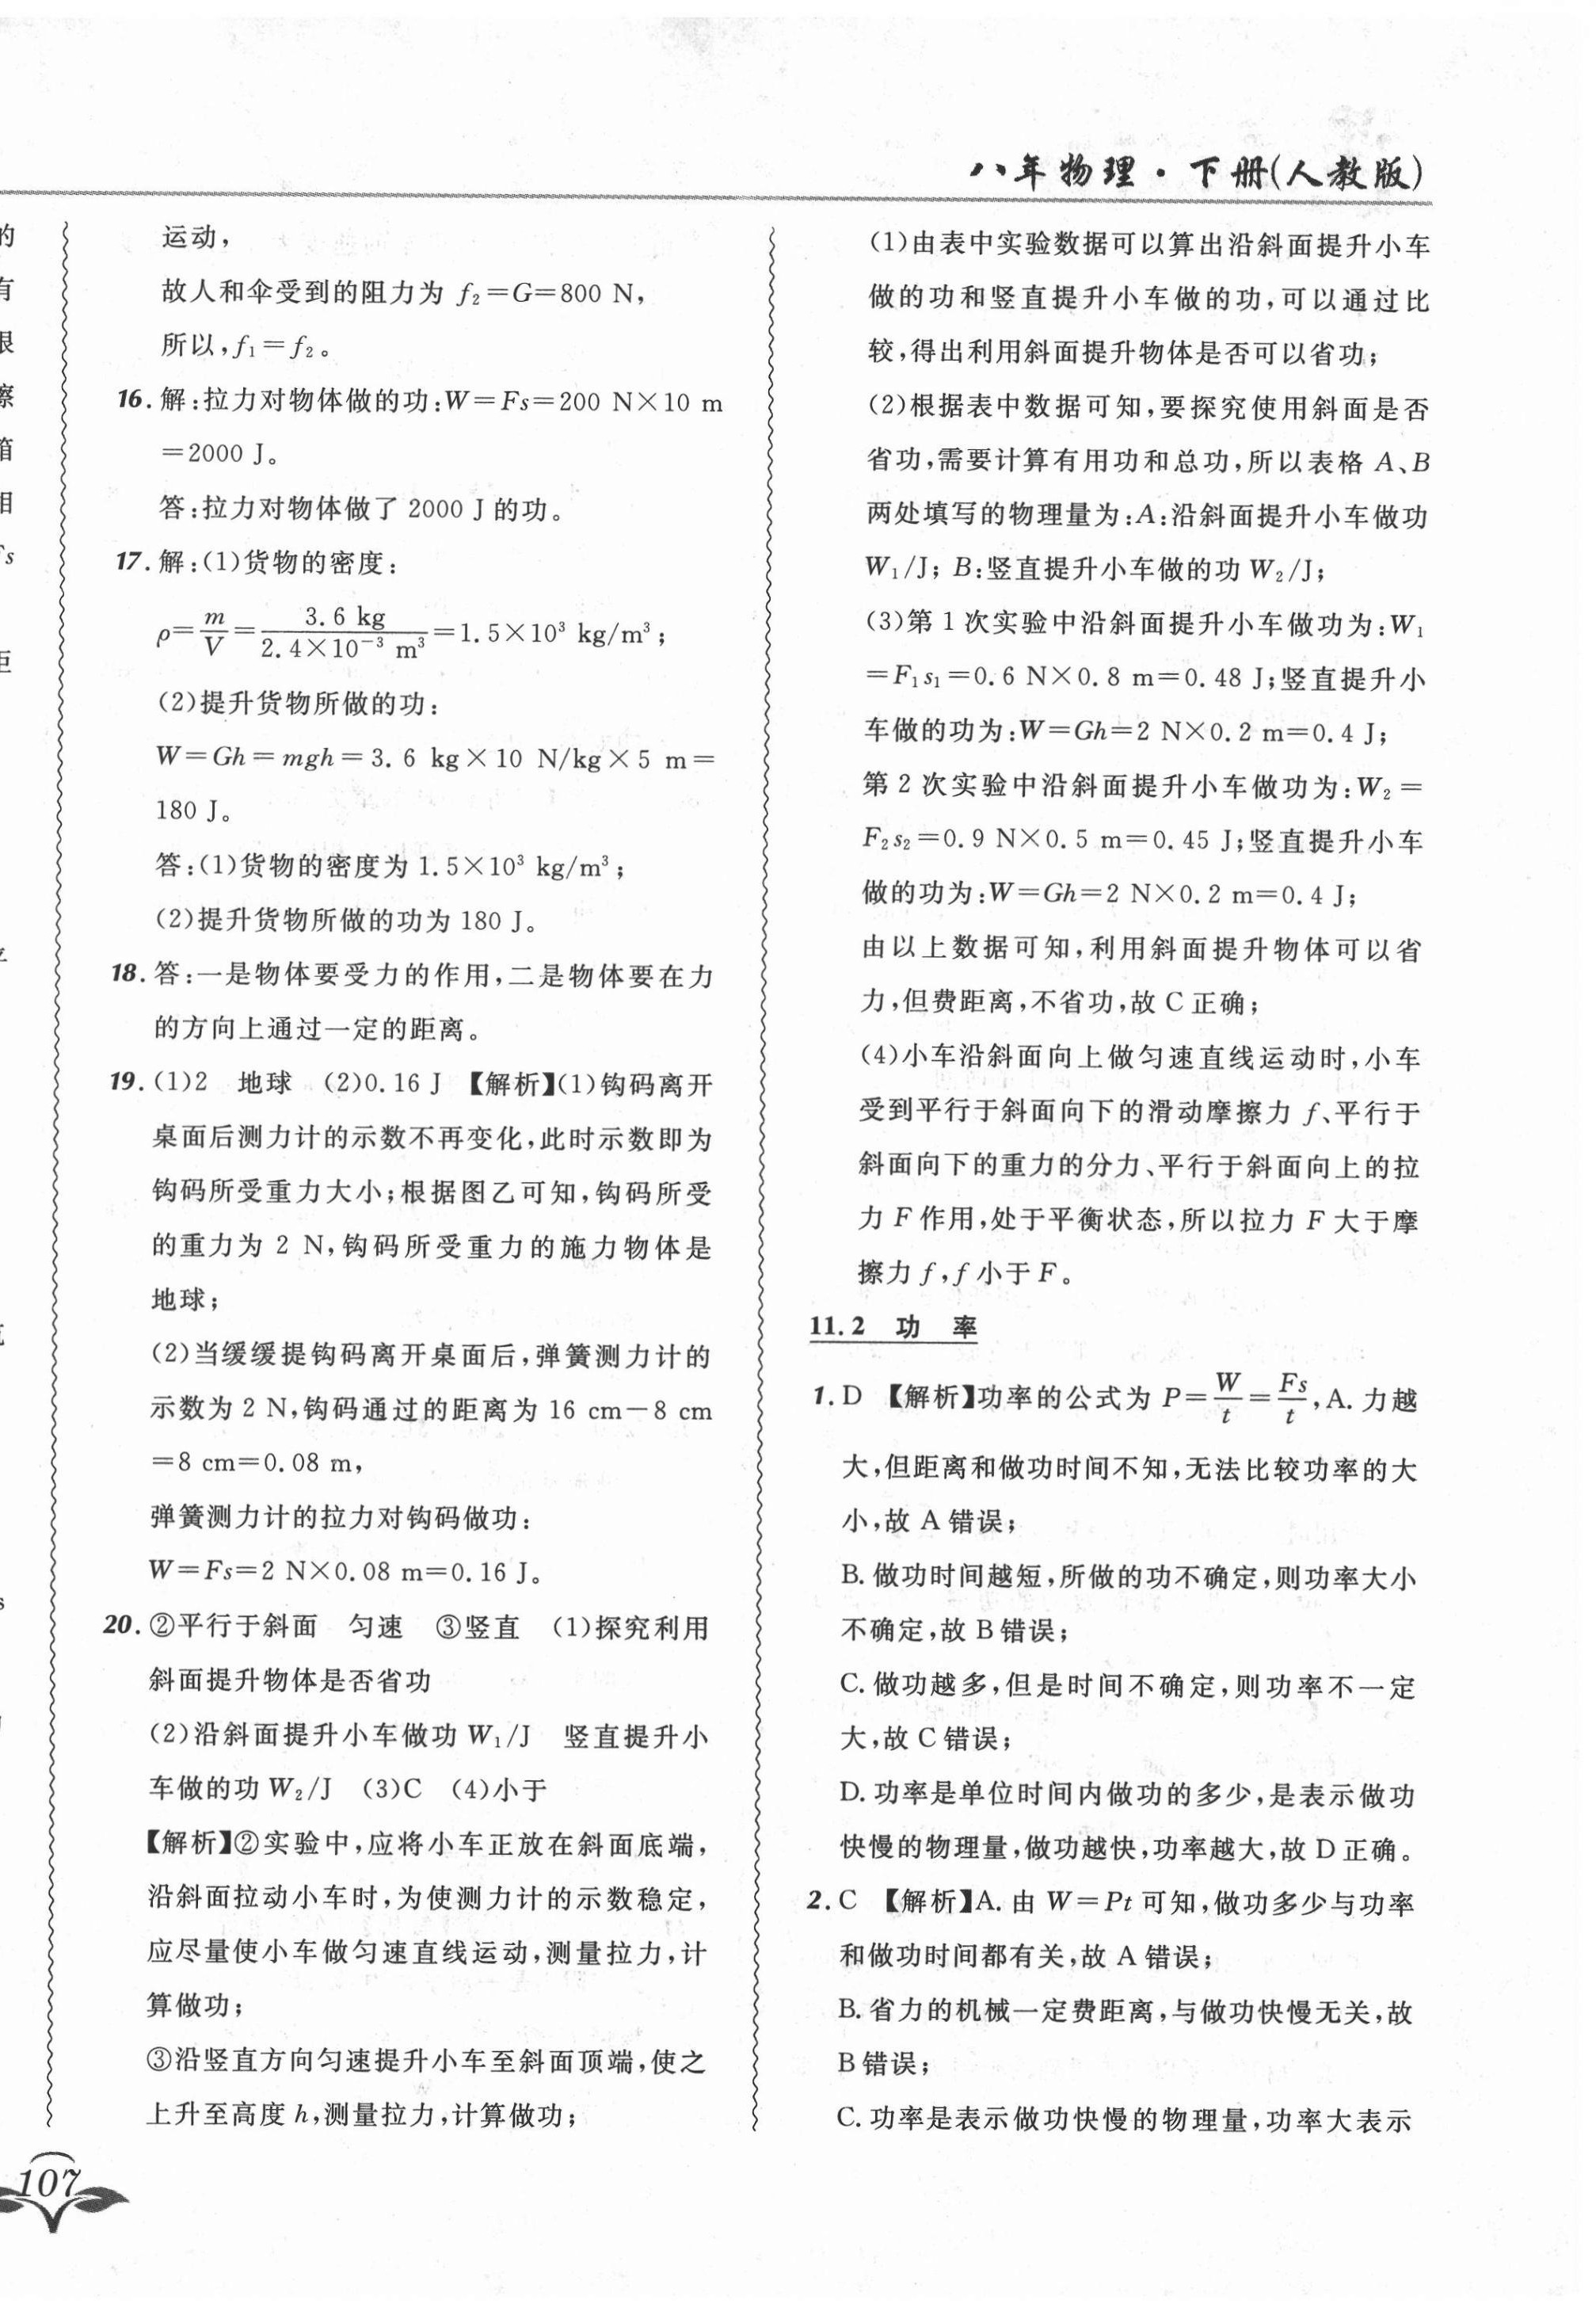 八年物理·下册(人教版)
的
有
限
擦
箱
相
Fs
距
运动，
故人和伞受到的阻力为 f₂＝G＝800 N，
所以，f₁＝f₂。
16. 解：拉力对物体做的功：W＝Fs＝200 N×10 m
＝2000 J。
答：拉力对物体做了 2000 J 的功。
17. 解：(1)货物的密度：
ρ＝m/V＝3.6 kg/2.4×10⁻³ m³＝1.5×10³ kg/m³；
(2)提升货物所做的功：
W＝Gh＝mgh＝3.6 kg×10 N/kg×5 m＝
180 J。
答：(1)货物的密度为 1.5×10³ kg/m³；
(2)提升货物所做的功为 180 J。
18. 答：一是物体要受力的作用，二是物体要在力
的方向上通过一定的距离。
19. (1)2　地球　(2)0.16 J　【解析】(1)钩码离开
桌面后测力计的示数不再变化，此时示数即为
钩码所受重力大小；根据图乙可知，钩码所受
的重力为 2 N，钩码所受重力的施力物体是
地球；
(2)当缓缓提钩码离开桌面后，弹簧测力计的
示数为 2 N，钩码通过的距离为 16 cm－8 cm
＝8 cm＝0.08 m，
弹簧测力计的拉力对钩码做功：
W＝Fs＝2 N×0.08 m＝0.16 J。
20. ②平行于斜面　匀速　③竖直　(1)探究利用
斜面提升物体是否省功
(2)沿斜面提升小车做功 W₁/J　竖直提升小
车做的功 W₂/J　(3)C　(4)小于
【解析】②实验中，应将小车正放在斜面底端，
沿斜面拉动小车时，为使测力计的示数稳定，
应尽量使小车做匀速直线运动，测量拉力，计
算做功；
③沿竖直方向匀速提升小车至斜面顶端，使之
上升至高度 h，测量拉力，计算做功；
(1)由表中实验数据可以算出沿斜面提升小车
做的功和竖直提升小车做的功，可以通过比
较，得出利用斜面提升物体是否可以省功；
(2)根据表中数据可知，要探究使用斜面是否
省功，需要计算有用功和总功，所以表格 A、B
两处填写的物理量为：A：沿斜面提升小车做功
W₁/J；B：竖直提升小车做的功 W₂/J；
(3)第 1 次实验中沿斜面提升小车做功为：W₁
＝F₁s₁＝0.6 N×0.8 m＝0.48 J；竖直提升小
车做的功为：W＝Gh＝2 N×0.2 m＝0.4 J；
第 2 次实验中沿斜面提升小车做功为：W₂＝
F₂s₂＝0.9 N×0.5 m＝0.45 J；竖直提升小车
做的功为：W＝Gh＝2 N×0.2 m＝0.4 J；
由以上数据可知，利用斜面提升物体可以省
力，但费距离，不省功，故 C 正确；
(4)小车沿斜面向上做匀速直线运动时，小车
受到平行于斜面向下的滑动摩擦力 f、平行于
斜面向下的重力的分力、平行于斜面向上的拉
力 F 作用，处于平衡状态，所以拉力 F 大于摩
擦力 f，f 小于 F。
11.2　功　率
1. D　【解析】功率的公式为 P＝W/t＝Fs/t，A. 力越
大，但距离和做功时间不知，无法比较功率的大
小，故 A 错误；
B. 做功时间越短，所做的功不确定，则功率大小
不确定，故 B 错误；
C. 做功越多，但是时间不确定，则功率不一定
大，故 C 错误；
D. 功率是单位时间内做功的多少，是表示做功
快慢的物理量，做功越快，功率越大，故 D 正确。
2. C　【解析】A. 由 W＝Pt 可知，做功多少与功率
和做功时间都有关，故 A 错误；
B. 省力的机械一定费距离，与做功快慢无关，故
B 错误；
C. 功率是表示做功快慢的物理量，功率大表示
107